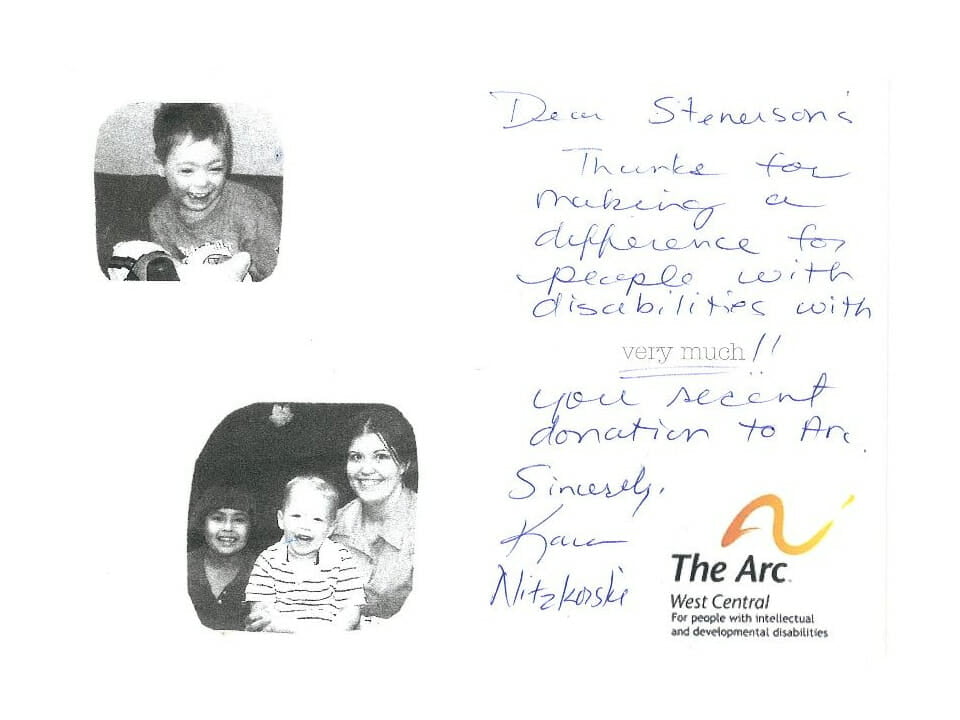 Dear Stenerson's
Thanks for
making a
difference for
people with
disabilities with
very much!!
you recent
donation to Arc.
Sincerely,
Karen
Nitzkorski
The Arc
West Central
For people with intellectual
and developmental disabilities